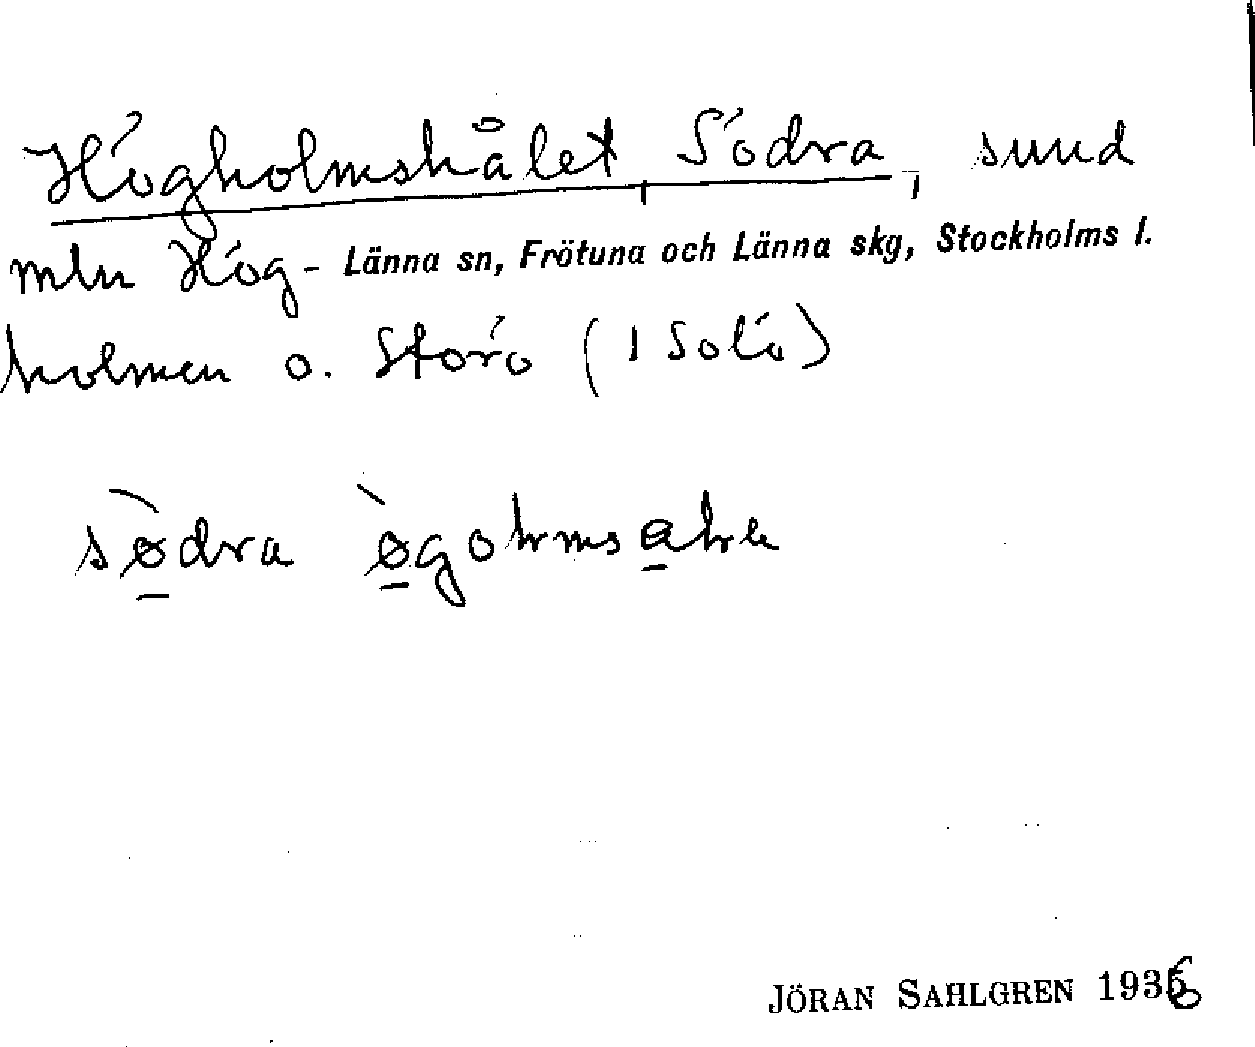 Högholmshålet, Södra, sund
mln Hög- Länna sn, Frötuna och Länna skg, Stockholms l.
holmen o. Storö (i Solö)
södra
JÖRAN SAHLGREN 1936